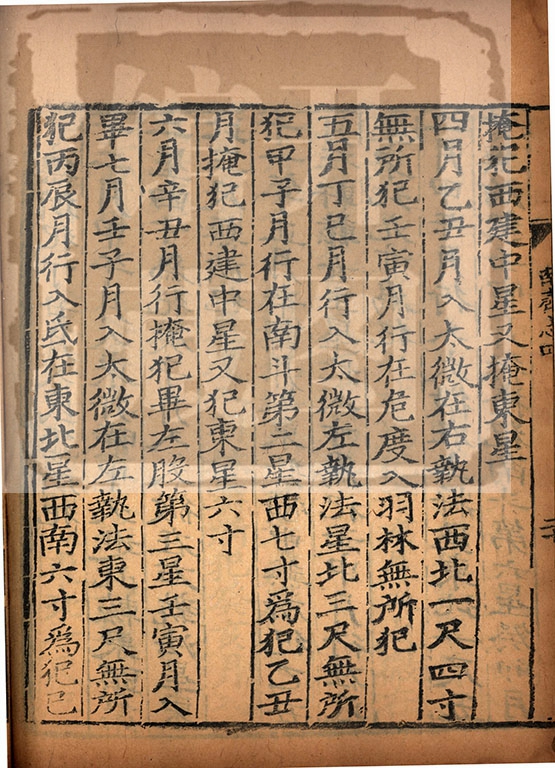 掩犯西建中星又掩東星
四月乙丑月入太微在右執法西北一尺四寸
無所犯壬寅月行在危度入羽林無所犯
五月丁巳月行入太微左執法星北三尺無所
犯甲子月行在南斗第二星西七寸為犯乙丑
月掩犯西建中星又犯東星六寸
六月辛丑月行掩犯畢左股第三星壬寅月入
畢七月壬子月入太微在左執法東三尺無所
犯丙辰月行入氐在東北星西南六寸為犯已